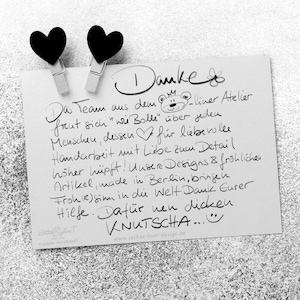 Danke
Das Team aus dem -liner Atelier
freut sich "wie Bolle" über jeden
Menschen, dessen ♡ für liebevolle
Handarbeit mit Liebe zum Detail
höher hüpft! Unsere Designs & fröhlichen
Artikel, made in Berlin, bringen
Froh(e)sinn in die Welt Dank Eurer
Hilfe. Dafür nen dicken
KNUTSCHA...